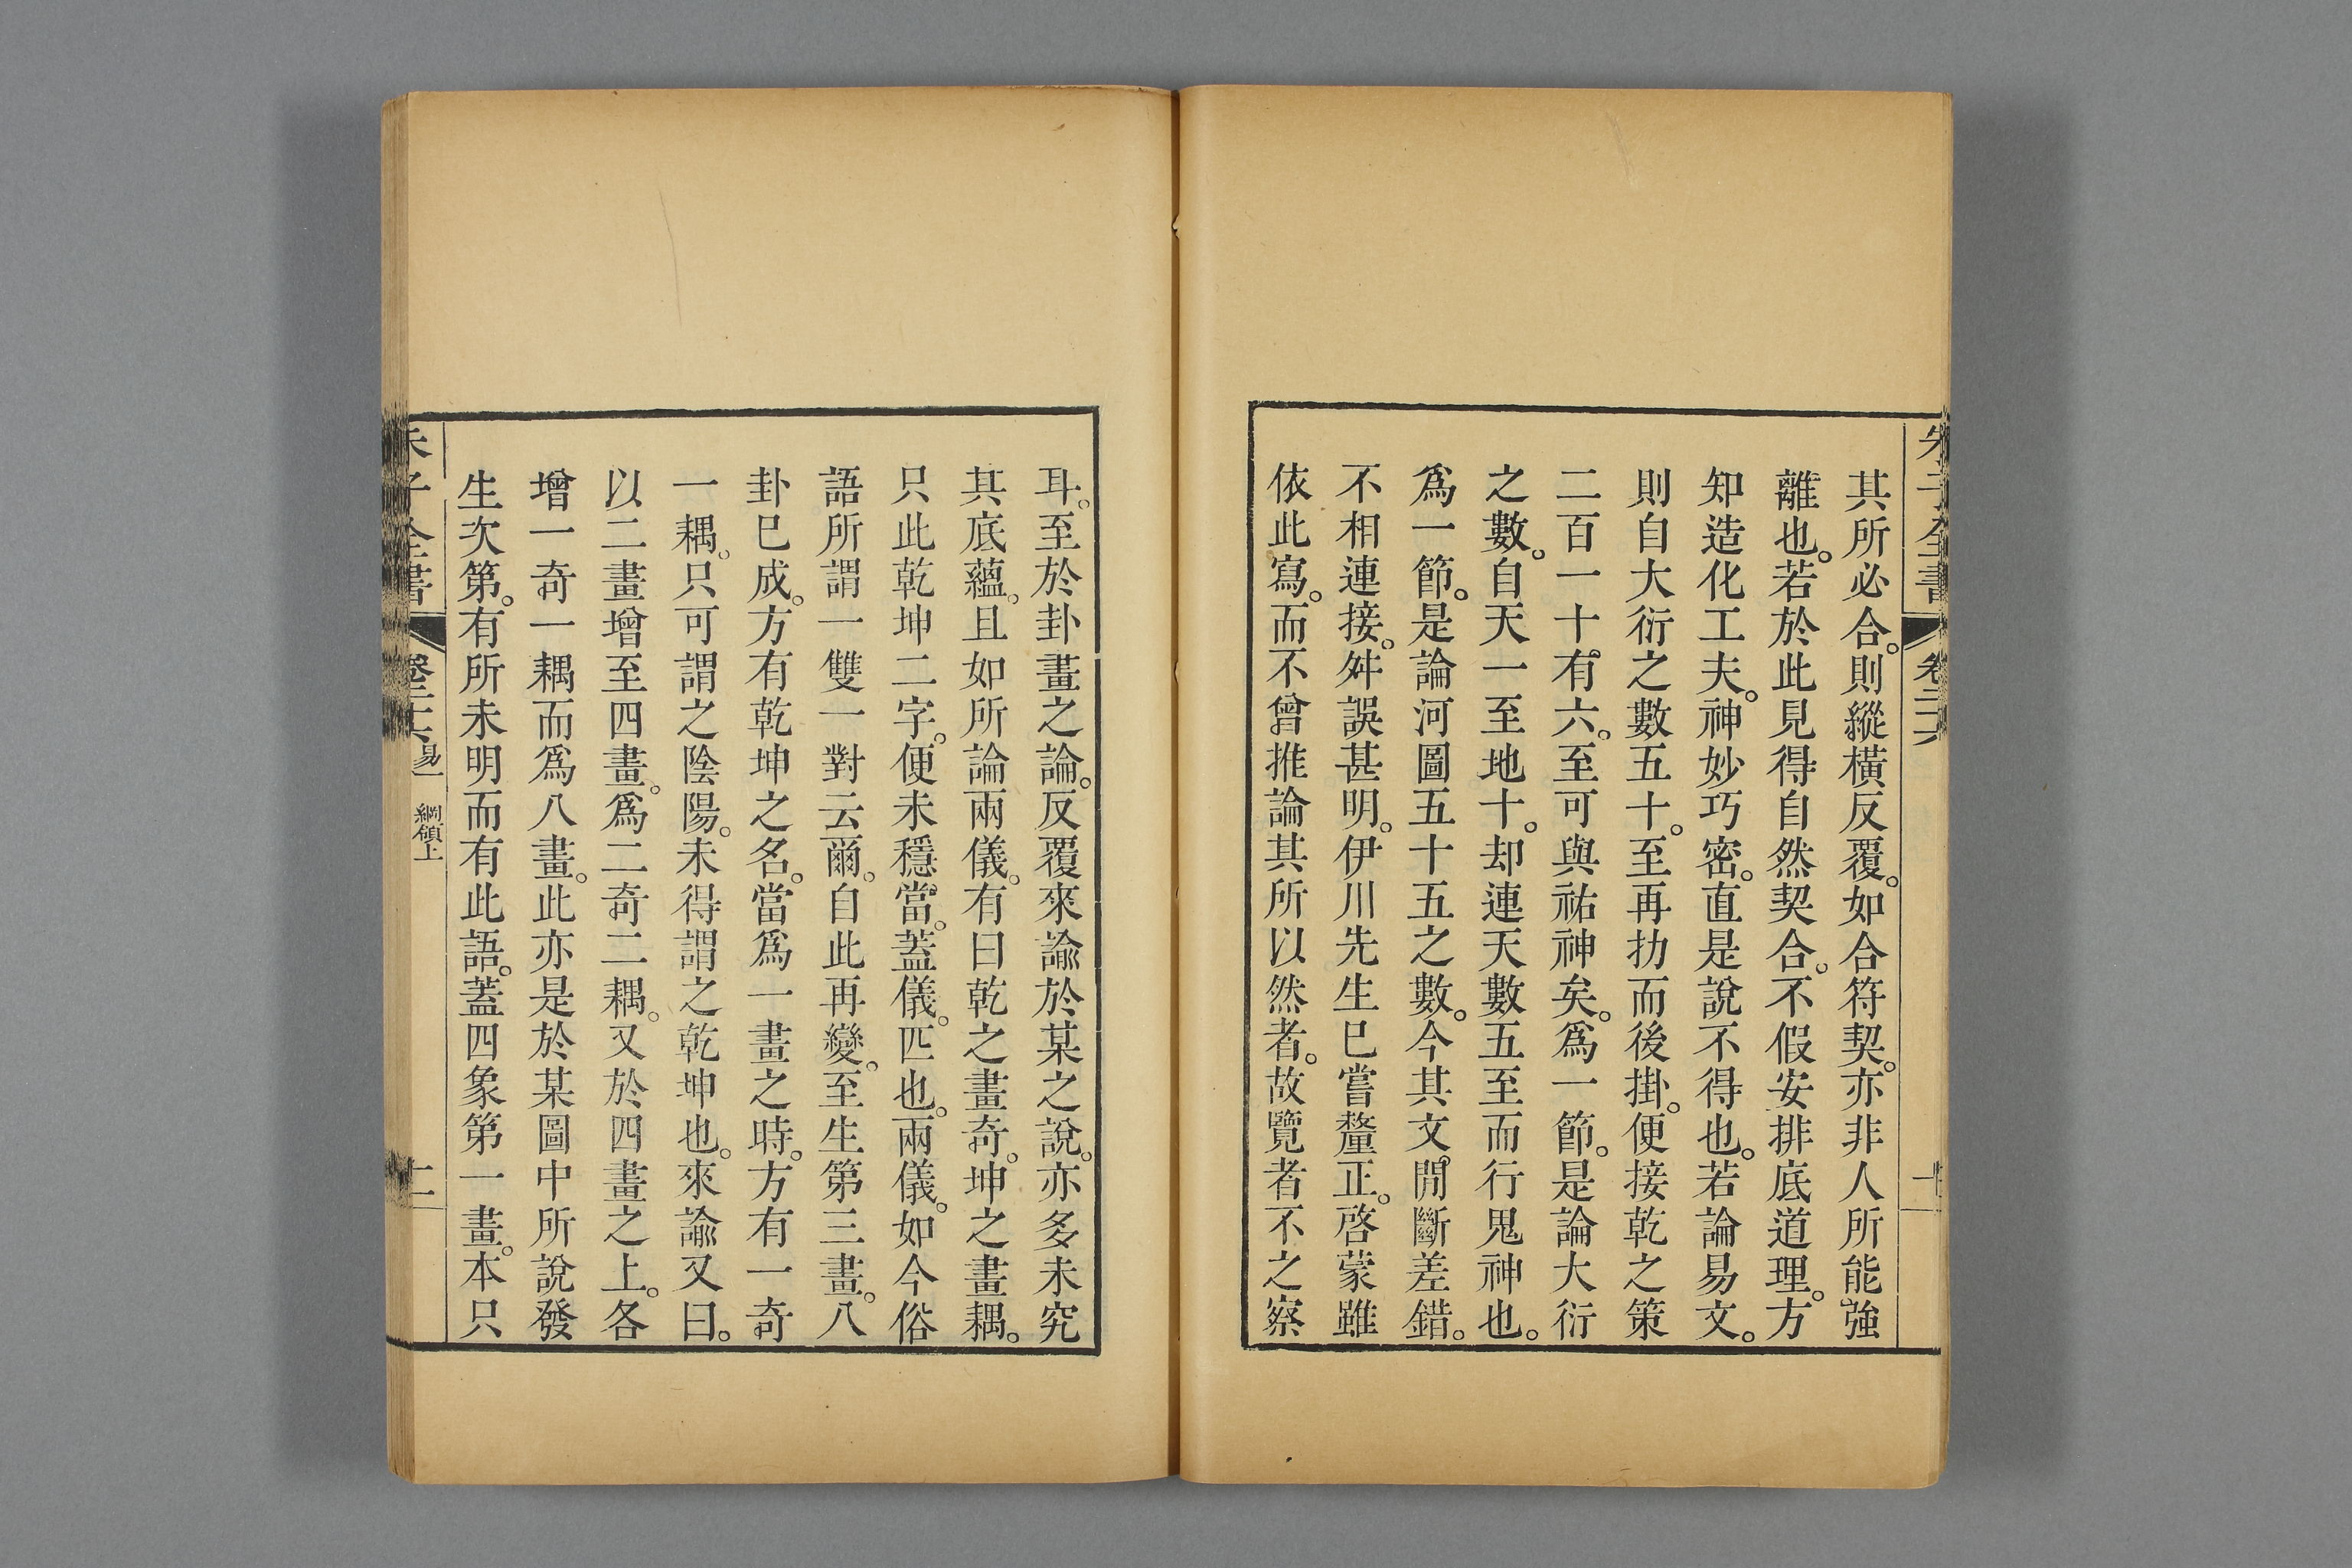 朱子全書 卷二十六
其所必合。則縱橫反覆。如合符契。亦非人所能強
離也。若於此見得自然契合。不假安排底道理。方
知造化工夫。神妙巧密。直是說不得也。若論易文。
則自大衍之數五十。至再扐而後掛。便接乾之策
二百一十有六。至可與祐神矣。爲一節。是論大衍
之數。自天一至地十。却連天數五至而行鬼神也。
爲一節。是論河圖五十五之數。今其文。閒斷差錯。
不相連接。舛誤甚明。伊川先生已嘗釐正。啓蒙雖
依此寫。而不曾推論其所以然者。故覽者不之察
耳。至於卦畫之論。反覆來諭於某之說。亦多未究
其底蘊。且如所論兩儀。有曰乾之畫奇。坤之畫耦。
只此乾坤二字。便未穩當。蓋儀。匹也。兩儀。如今俗
語所謂一雙一對云爾。自此再變。至生第三畫。八
卦已成。方有乾坤之名。當爲一畫之時。方有一奇
一耦。只可謂之陰陽。未得謂之乾坤也。來諭又曰。
以二畫增至四畫。爲二奇二耦。又於四畫之上。各
增一奇一耦而爲八畫。此亦是於某圖中所說發
生次第。有所未明而有此語。蓋四象第一畫。本只
朱子全書 卷二十六 易一 綱領上